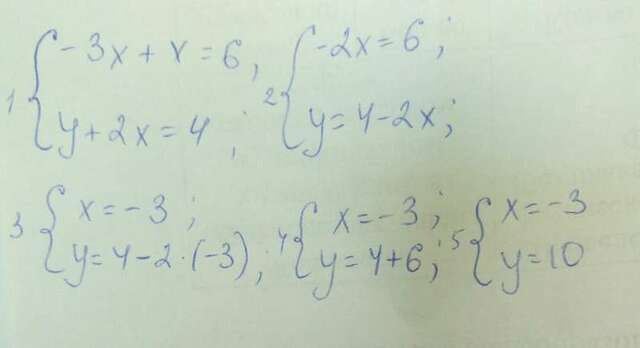 1 { -3x + x = 6,
y + 2x = 4 ;
2 { -2x = 6 ;
y = 4 - 2x ;
3 { x = -3 ;
y = 4 - 2 · (-3) ;
4 { x = -3 ;
y = 4 + 6 ;
5 { x = -3
y = 10